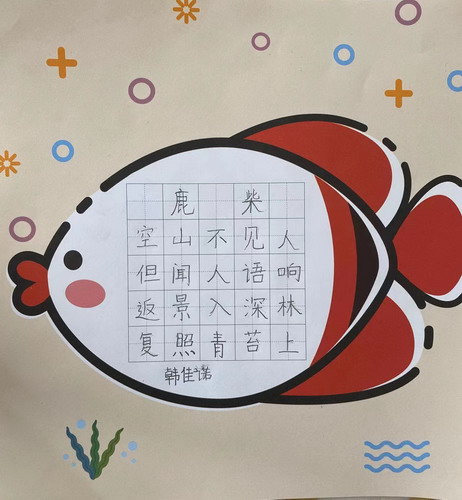 鹿柴
空山不见人
但闻人语响
返景入深林
复照青苔上
韩佳诺